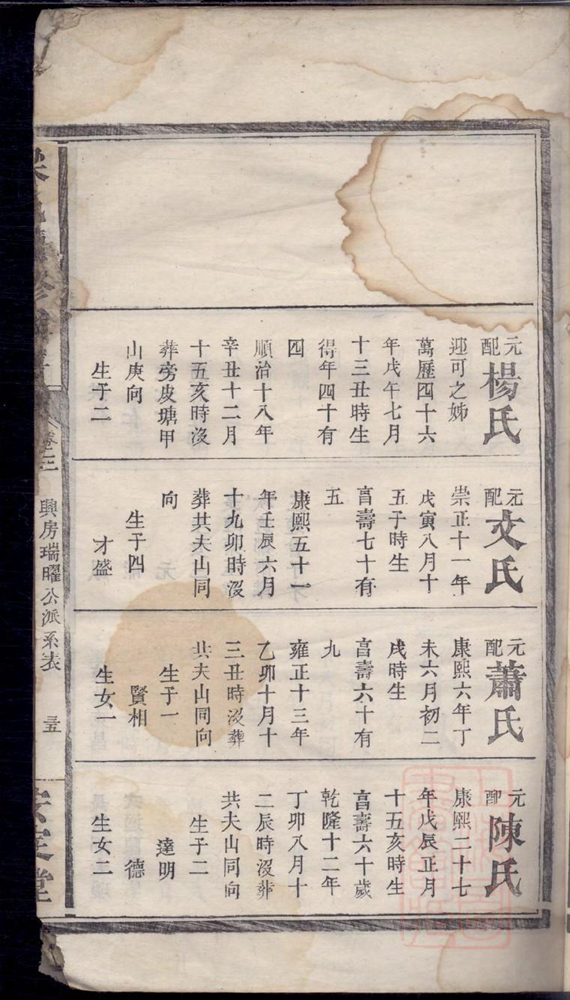 元配楊氏
迎可之姊
萬歷四十六
年戊午七月
十三丑時生
得年四十有
四
順治十八年
辛丑十二月
十五亥時沒
葬旁皮塘甲
山庚向
生子二
元配文氏
崇正十一年
戊寅八月十
五子時生
亯壽七十有
五
康熙五十一
年壬辰六月
十九卯時沒
葬共夫山同
向
生子四
才盛
元配蕭氏
康熙六年丁
未六月初二
戌時生
亯壽六十有
九
雍正十三年
乙卯十月十
三丑時沒葬
共夫山同向
生子一
賢相
生女一
元配陳氏
康熙二十七
年戊辰正月
十五亥時生
亯壽六十歲
乾隆十二年
丁卯八月十
二辰時沒葬
共夫山同向
生子二
達明
德
生女二
卷之三
興房瑞曜公派系表
三五
安定堂